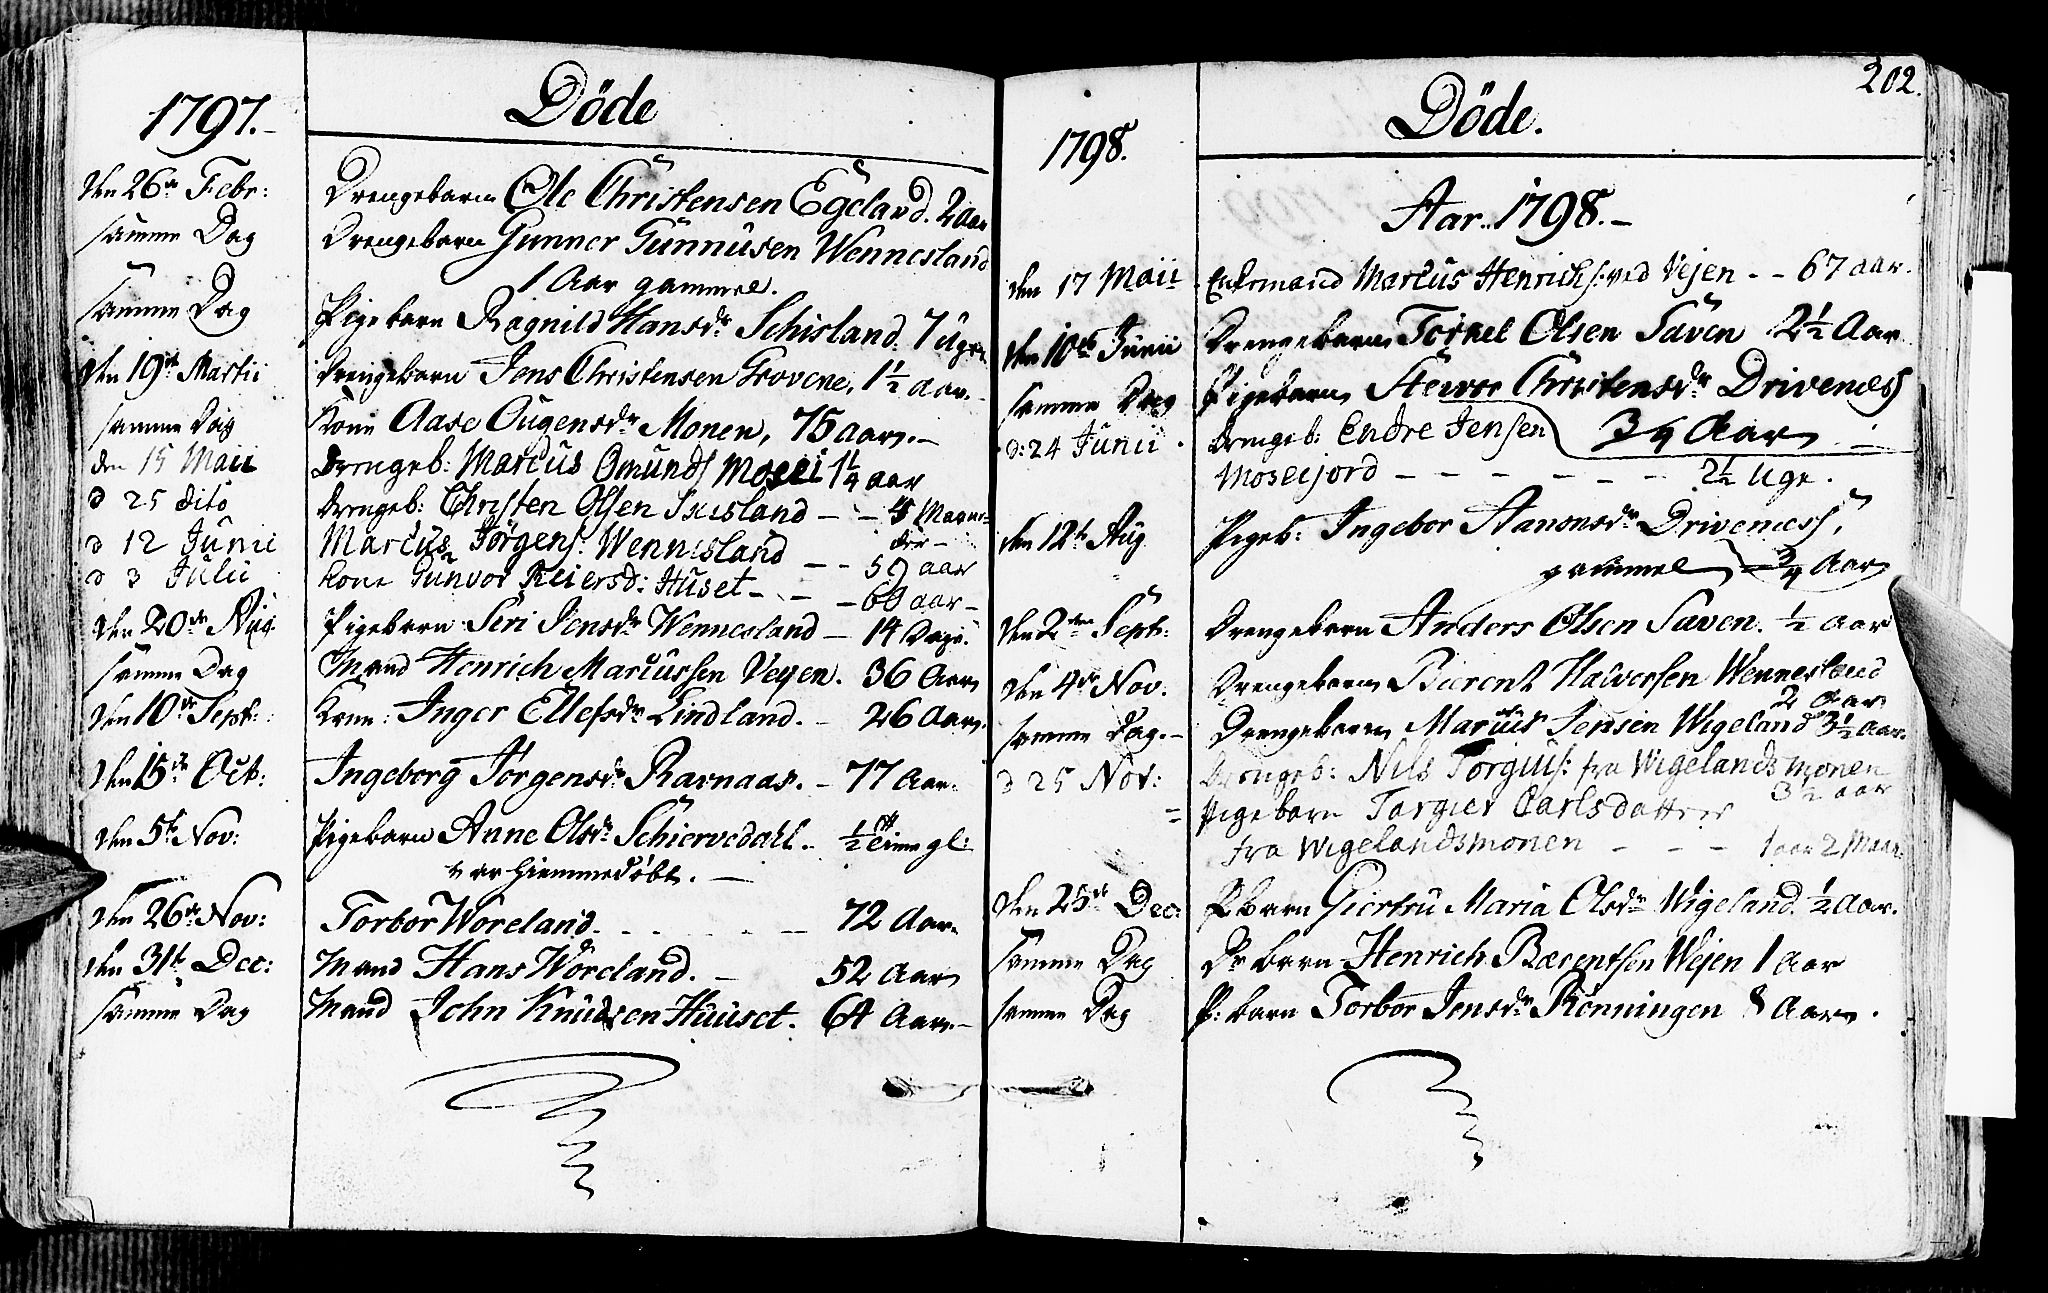 1797.-
Döde
den 26de Febr: Drengebarn Ole Christensen Egeland. 2 Aar
samme Dag Drengebarn Gunner Gunnusen Wennesland
1 Aar gammel.
samme Dag Pigebarn Ragnild Hansdr Schisland. 7 Uger
den 19de Martii Drengebarn Jens Christensen Grovene, 1½ Aar.-
samme Dag Kone Aase Ougensdr Monen, 75 aar.-
den 15 Maii Drengeb: Marcus Omunds Mosei 1¼ aar
d 25 dito Drengeb: Christen Olsen - - Maane=
der -
d 12 Junii Marcus Jörgens: Wennesland - - aar
d 3 Julii Kone Gunvor Reiersd: Huset - - - 60 aar -
den 20de Aug. Pigebarn Siri Jensdr Wennesland - 14 Dage.
samme Dag Mand Henrich Marcussen Veyen. 36 Aar
den 10de Sept: Kone: Inger Ellefsdr Lindland. - 26 Aar.
den 15de Oct: Ingeborg Jörgensdr Ravnaas. - 77 Aar.
den 5te Nov: Pigebarn Anne Olsdr Schiervedahl. ½ Time gl:
var hiemmedöbt. -
den 26de Nov: Torbor Wöreland. - - - - - 72 Aar.
den 31te Dec: Mand Hans Wöreland. - 52 Aar
samme Dag Mand John Knudsen Huuset. 64 Aar.-
1798.
Döde.
202.
Aar. 1798.-
den 17 Maii Enkemand Marcus Henrichs: ved Vejen - - 67 aar.
den 10de Junii Drengebarn Torkel Olsen Säven 2½ Aar
samme Dag Pigebarn Christensdr Drivenes
3/4 Aar
d: 24 Junii. Drengeb: Endre Jensen
Mosefjord - - - - - - 2½ Uge.
den 12te Aug Pigeb: Ingebor Aanonsdr Drivenes,
gammel 3/4 Aar
den 2den Sept: Drengebarn Anders Olsen Säven. ½ Aar
den 4de Nov. Drengebarn Bierent Halvorsen Wennesland
2 Aar.
samme Dag.- Drengebarn Marius Jensen Wigeland 3½ Aar.
d 25 Nov: Drengeb: Nils Torgius: fra Wigelandsmonen
3½ aar
= Pigebarn Torgier Carlsdatter
fra Wigelandsmonen - - - 1 aar 2 Maan:
den 25de Dec: P. barn Giertru Maria Olsdr Wigeland. ½ Aar.
samme Dag Dr barn Henrich Bærentsen Wejen 1 Aar
samme Dag P: barn Torbor Jensdr Rönningen 8 Aar.